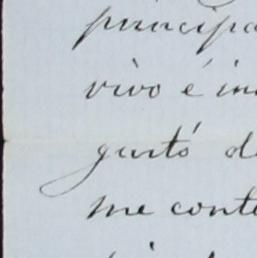 principa
vivo é in
gustó d
me conte